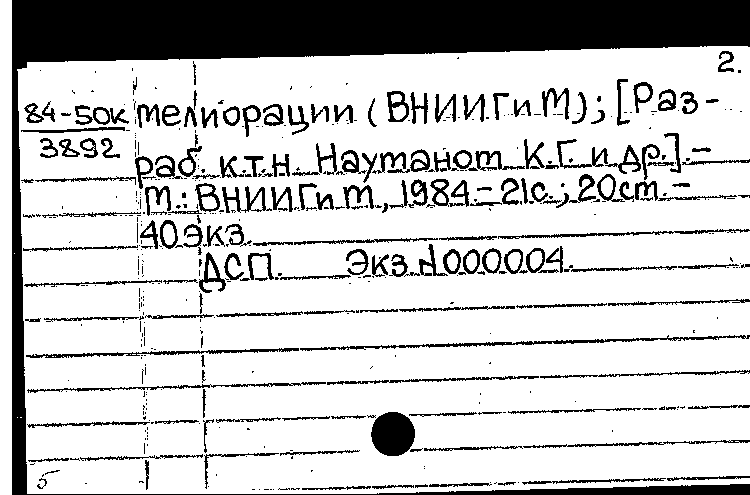 2.
84-50к
3892
мелиорации (ВНИИГиМ); [Раз-
раб. к.т.н. Науманом К.Г. и др.].-
М.: ВНИИГиМ, 1984.- 21с.; 20см.-
40экз.
ДСП. Экз.№000004.
б